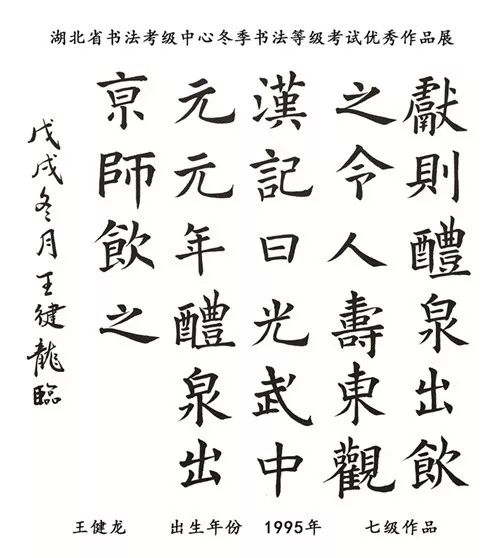 湖北省书法考级中心冬季书法等级考试优秀作品展
獻則醴泉出飲
之令人壽東觀
漢記曰光武中
元元年醴泉出
京師飲之
戊戌冬月王健龍臨
王健龙 出生年份 1995年 七级作品